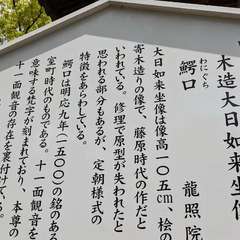 木造大日如来坐像
わにぐち
鰐口
龍照院
大日如来坐像は像高一〇五cm、桧の
寄木造りの像で、藤原時代の作だと
いわれている。修理で原型が失われたと
思われる部分もあるが、定朝様式の
特徴をあらわしている。
鰐口は明応九年(一五〇〇)の銘のある
室町時代のものである。十一面観音を
意味する梵字が刻まれており、本尊の
十一面観音の存在を裏付けている。